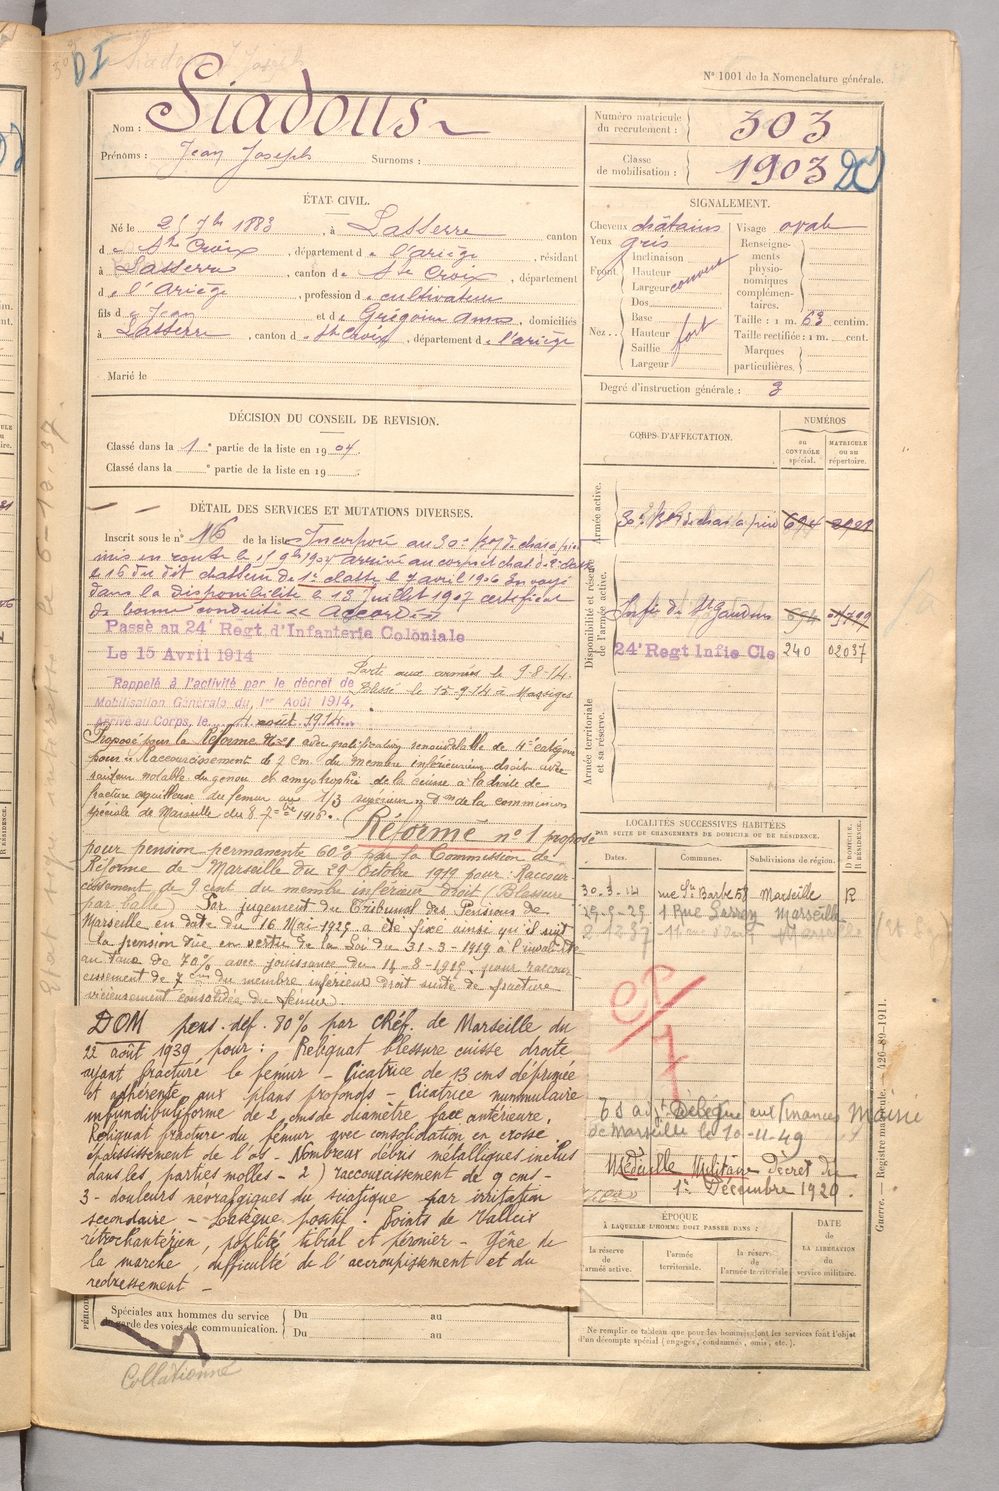 N° 1001 de la Nomenclature générale.
DI
Nom : Siadous
Prénoms : Jean Joseph Surnoms :
Numéro matricule du recrutement : 303
Classe de mobilisation : 1903
ÉTAT CIVIL.
Né le 25 7bre 1883, à Lasserre canton
de Ste Croix, département de l'ariège, résidant
à Lasserre, canton de Ste Croix, département
de l'Ariège, profession de cultivateur
fils de Jean et de Grégoire Anne, domiciliés
à Lasserre, canton de Ste Croix, département de l'ariège
Marié le
SIGNALEMENT.
Cheveux châtains Visage ovale
Yeux gris
Front Inclinaison Hauteur Largeur
Nez Dos Base Hauteur Saillie Largeur fort
Renseignements physionomiques complémentaires.
Taille : 1 m. 63 centim.
Taille rectifiée : 1 m. cent.
Marques particulières.
Degré d'instruction générale : 3
DÉCISION DU CONSEIL DE REVISION.
Classé dans la 1e partie de la liste en 1904.
Classé dans la e partie de la liste en 19
DÉTAIL DES SERVICES ET MUTATIONS DIVERSES.
Inscrit sous le n° 16 de la liste Incorporé au 30e Bon de chas à pied
mis en route le 15 9bre 1904 arrivé au corps et chas. de 2e classe
le 16 du dit chasseur de 1e classe le 7 avril 1906 Envoyé
dans la disponibilité le 18 Juillet 1907 certificat
de bonne conduite « Accordé »
Passé au 24e Regt d'Infanterie Coloniale
Le 15 Avril 1914
Rappelé à l'activité par le décret de
Mobilisation Générale du 1er Août 1914,
Arrivé au Corps, le 11 août 1914
Parti aux armées le 9-8-14.
Blessé le 15-9-14 à Massiges
Proposé pour la Réforme N° 1 avec gratification renouvelable de 4e catégorie
pour « Raccourcissement de 7 cm. du membre inférieur droit avec
raideur notable du genou et amyotrophie de la cuisse à la droite de
fracture du femur au 1/3 supérieur » de la commission
spéciale de Marseille du 8 7bre 1916.
Réformé n° 1 proposé
pour pension permanente 60% par la Commission de
Réforme de Marseille du 29 Octobre 1919 pour : Raccour-
cissement de 9 cent du membre inférieur droit (Blessure
par balle) Par jugement du Tribunal des Pensions de
Marseille en date du 16 Mai 1925 a été fixé ainsi qu'il suit
la pension due en vertu de la Loi du 31-3-1919 à l'invalidité
au taux de 70% avec jouissance du 14-8-1919, pour raccour-
cissement de 7 cm du membre inférieur droit suite de fracture
vicieusement consolidée du fémur.
DOM pens. déf. 80% par cRéf. de Marseille du
22 août 1939 pour : Reliquat blessure cuisse droite
ayant fracturé le fémur - Cicatrice de 13 cms déprimée
et adhérente aux plans profonds - Cicatrice nummulaire
infundibuliforme de 2 cms de diamètre face antérieure.
Reliquat fracture du fémur avec consolidation en crosse
épaississement de l'os - Nombreux débris métalliques inclus
dans les parties molles - 2) raccourcissement de 9 cms -
3- douleurs névralgiques du sciatique par irritation
secondaire - Lasègue positif. Points de Valleix
rétrochantérien, poplité tibial et péronier - Gêne de
la marche, difficulté de l'accroupissement et du
redressement -
Spéciales aux hommes du service de garde des voies de communication.
Du au
Du au
Collationné
CORPS D'AFFECTATION.
NUMÉROS
au CONTRÔLE spécial.
MATRICULE ou au répertoire.
Armée active.
30e Bon de chas à pied 694
Disponibilité et réserve de l'armée active.
Infie de St Gaudens 694
24e Regt Infie Cle 240 02037
Armée territoriale et sa réserve.
LOCALITÉS SUCCESSIVES HABITÉES
PAR SUITE DE CHANGEMENTS DE DOMICILE OU DE RÉSIDENCE.
Dates. Communes. Subdivisions de région. D DOMICILE, R RÉSIDENCE.
30-3-14 rue Ste Barbe 58 Marseille R
Marseille
Marseille
Délégué aux Finances Mairie
de Marseille le 10-11-49
Médaille Militaire décret du
1er Décembre 1920.
ÉPOQUE
À LAQUELLE L'HOMME DOIT PASSER DANS :
la réserve de l'armée active.
l'armée territoriale.
la réserve de l'armée territoriale
DATE de LA LIBÉRATION du service militaire.
Ne remplir ce tableau que pour les hommes dont les services font l'objet
d'un décompte spécial (engagés, condamnés, omis, etc.).
Guerre. — Registre matricule. — 426-89-1911.